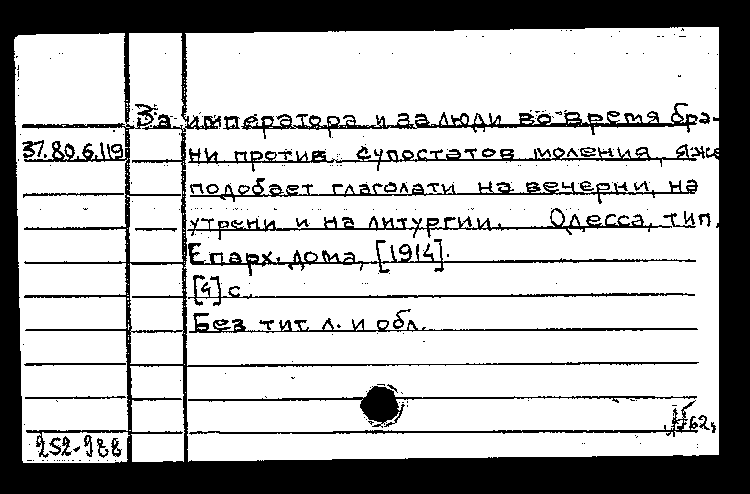 За императора и за люди во время бра-
37.80.6.119 ни против супостатов моления, яже
подобает глаголати на вечерни, на
утрени и на литургии. Одесса, тип.
Епарх. дома, [1914].
[4] с.
Без тит. л. и обл.
62,
252-988